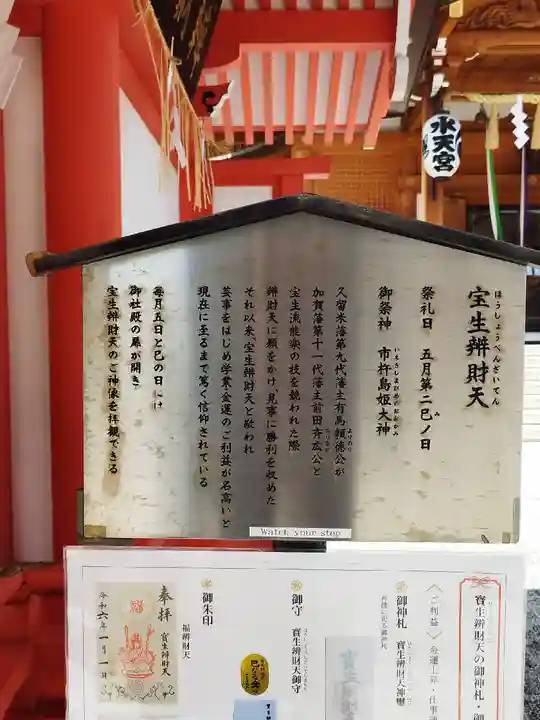 水天宮
宝生辨財天
ほうしょうべんざいてん
祭礼日 五月第二巳ノ日
み
御祭神 市杵島姫大神
いちきしまひめのおおかみ
久留米藩第九代藩主有馬頼徳公が
よりのり
加賀藩第十一代藩主前田斉広公と
なりなが
宝生流能楽の技を競われた際
辨財天に願をかけ、見事に勝利を収めた
それ以来、宝生辨財天と敬われ
芸事をはじめ学業金運のご利益が名高いと
現在に至るまで篤く信仰されている
毎月五日と巳の日には
御社殿の扉が開き
宝生辨財天のご神像を拝観できる
Watch your step
寶生辨財天の御神札・御
〈ご利益〉 金運上昇・仕事
御神札 寶生辨財天神璽
御守 寶生辨財天御守
御朱印
福辨財天
奉拝
寶生辨財天
令和六年一月一日